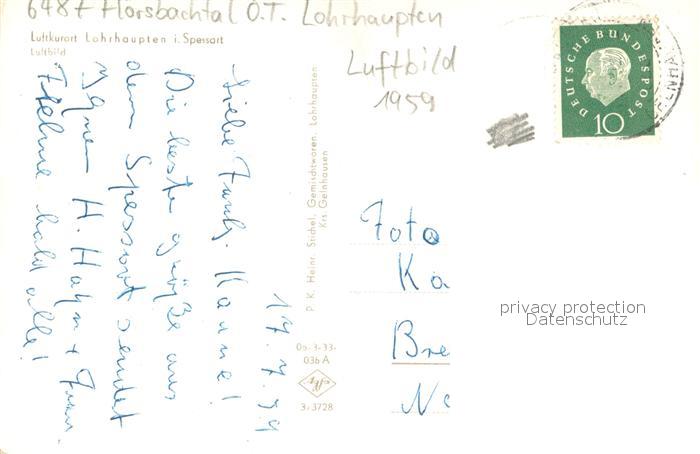 6487 Flörsbachtal O.T. Lohrhaupten
Luftkurort Lohrhaupten i. Spessart
Luftbild
Luftbild
1959
DEUTSCHE BUNDESPOST
10
17.7.59
Liebe Famb. Kanne!
Die beste grüße aus
dem Spessart sendet
H. Hahn + Frau
halt alle!
P. K. Heinr. Stichel, Gemischtwaren, Lohrhaupten
Krs. Gelnhausen
Oo-3-33-
036 A
3/3728
Foto
Ka
Bre
Ne
privacy protection
Datenschutz